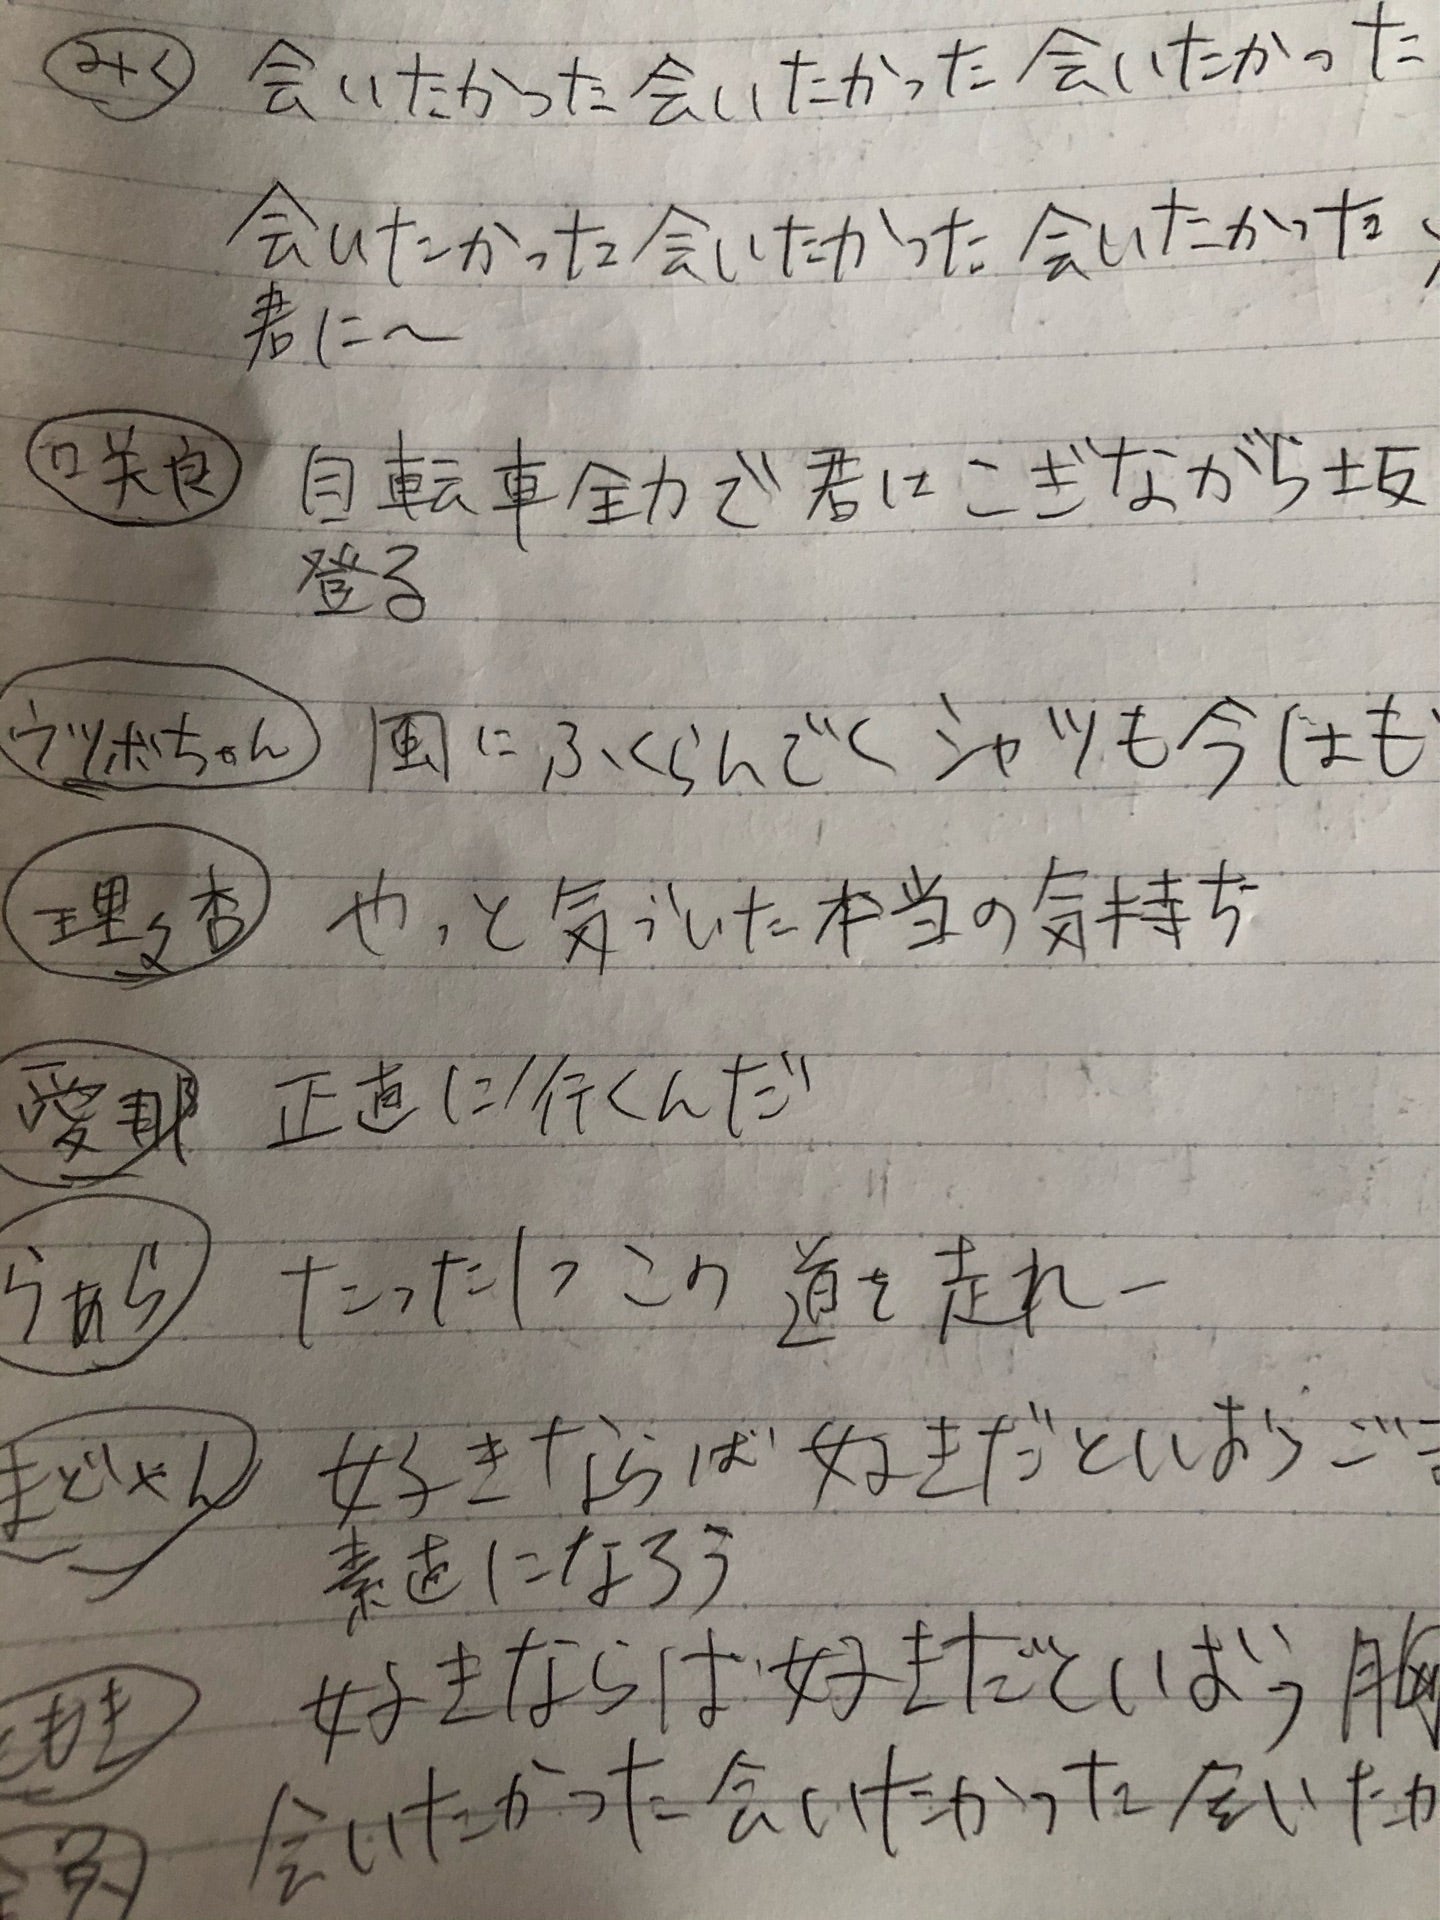 みく 会いたかった会いたかった会いたかった
会いたかった会いたかった会いたかった
君に〜
咲良 自転車全力で君にこぎながら坂
登る
ウツボちゃん 風にふくらんでくシャツも今はも
理々杏 やっと気づいた本当の気持ち
愛 正直に行くんだ
らぁら たったひつこの道を走れー
まどちゃん 好きならば好きだといおう
素直になろう
好きならば好きだといおう 胸
会いたかった会いたかった会いたか